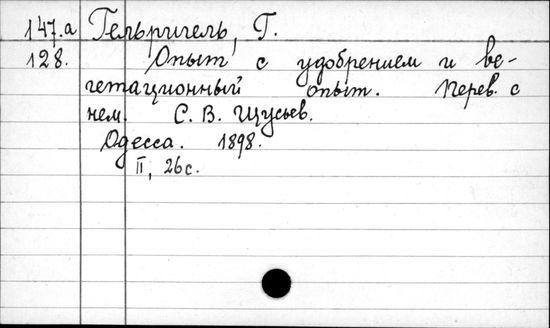 147.а Гельригель, Г.
128. Опыт с удобрением и ве-
гетационный опыт. Перев. с
нем. С. В. Щусьев.
Одесса. 1898.
II, 26 с.